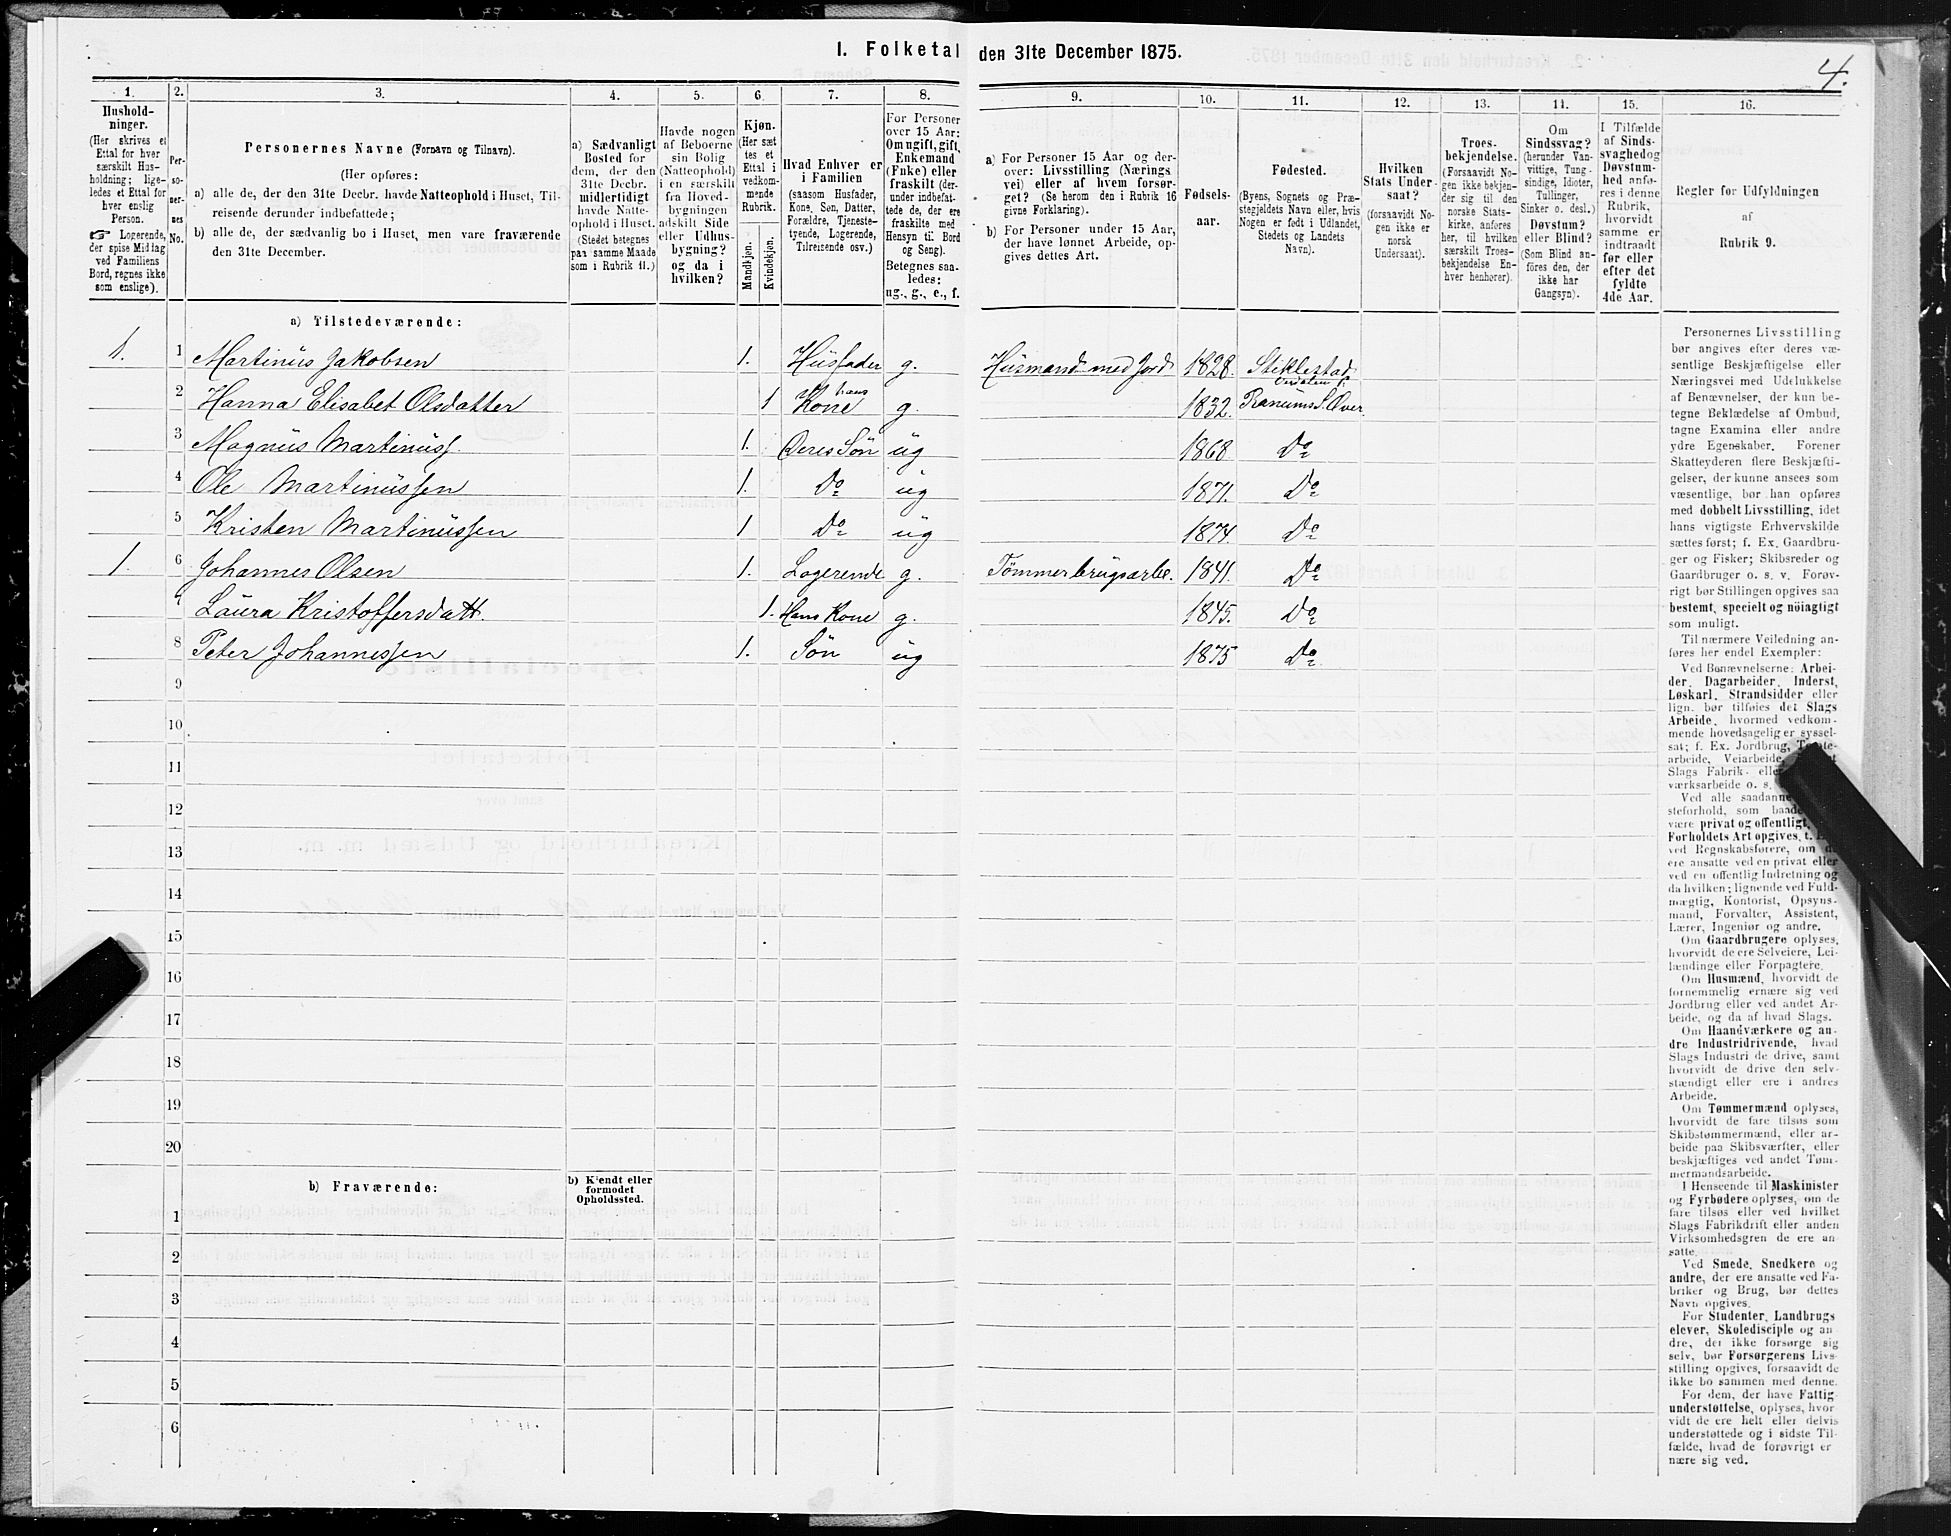 1. Folketal den 31te December 1875.
4.
1. 2. 3. 4. 5. 6. 7. 8. 9. 10. 11. 12. 13. 14. 15. 16.
Hushold-
ninger.
(Her skrives et
Ettal for hver
særskilt Hus-
holdning; lige-
ledes et Ettal for
hver enslig
Person.
☞ Logerende,
der spise Middag
ved Familiens
Bord, regnes ikke
som enslige).
Per-
so-
ner-
nes
No.
Personernes Navne (Fornavn og Tilnavn).
(Her opføres:
a) alle de, der den 31te Decbr. havde Natteophold i Huset, Til-
reisende derunder indbefattede;
b) alle de, der sædvanlig bo i Huset, men vare fraværende
den 31te December.
a) Sædvanligt
Bosted for
dem, der den
31te Decbr.
midlertidigt
havde Natte-
ophold i Huset.
(Stedet betegnes
paa samme Maade
som i Rubrik 11.)
Havde nogen
af Beboerne
sin Bolig
(Natteophold)
i en særskilt
fra Hoved-
bygningen
adskilt Side
eller Udhus-
bygning?
og da i
hvilken?
Kjøn.
(Her sæt
tes et
Ettal i
vedkom-
mende
Rubrik.
Mandkjøn.
Kvindekjøn.
Hvad Enhver er
i Familien
(saasom Husfader,
Kone, Søn, Datter,
Forældre, Tjeneste-
tyende, Logerende,
Tilreisende osv.)
For Personer
over 15 Aar:
Om ugift, gift,
Enkemand
(Enke) eller
fraskilt (der-
under indbefat-
tede de, der ere
fraskilte med
Hensyn til Bord
og Seng).
Betegnes saa-
ledes:
ug., g., e., f.
a) For Personer 15 Aar og der-
over: Livsstilling (Nærings
vei) eller af hvem forsør-
get? (Se herom den i Rubrik 16
givne Forklaring).
b) For Personer under 15 Aar,
der have lønnet Arbeide, op-
gives dettes Art.
Fødsels-
aar.
Fødested.
(Byens, Sognets og Præ-
stegjeldets Navn eller, hvis
Nogen er født i Udlandet,
Stedets og Landets
Navn).
Hvilken
Stats Under-
saat?
(forsaavidt No-
gen ikke er
norsk
Undersaat).
Troes-
bekjendelse.
(Forsaavidt No-
gen ikke bekjen-
der sig til den
norske Stats-
kirke, anføres
her, til hvilken
særskilt Troes-
bekjendelse En-
hver henhører).
Om
Sindssvag?
(herunder Van-
vittige, Tung-
sindige, Idioter,
Tullinger,
Sinker o. desl.)
Døvstum?
eller Blind?
(Som Blind an-
føres den, der
ikke har
Gangsyn).
I Tilfælde
af Sinds-
svaghed og
Døvstum-
hed anfø-
res i denne
Rubrik,
hvorvidt
samme er
indtraadt
før eller
efter det
fyldte
4de Aar.
Regler for Udfyldningen
af
Rubrik 9.
a) Tilstedeværende:
1. 1 Martinus Jakobsen 1. Husfader g. Husmand med Jord 1828. Stiklestad Verdalen P.
2 Hanna Elisabet Olsdatter 1 hans Kone g. 1832. Ranums S. Over
3 Magnus Martinuss. 1. Deres Søn ug 1868 Do
4 Ole Martinussen 1. Do ug 1871. Do
5 Kristen Martinussen 1 Do ug 1874. Do
1. 6 Johannes Olsen 1. Logerende g. Tømmerbrugsarbe. 1841. Do
7 Laura Kristoffersdatt. 1. Hans Kone g. 1845. Do
8 Peter Johannessen 1. Søn ug 1875 Do
9
10
11
12
13
14
15
16
17
18
19
20
b) Fraværende:
b) Kjendt eller
formodet
Opholdssted.
1
2
3
4
5
6
Personernes Livsstilling
bør angives efter deres væ-
sentlige Beskjæftigelse eller
Næringsvei med Udelukkelse
af Benævnelser, der kun be-
tegne Beklædelse af Ombud,
tagne Examina eller andre
ydre Egenskaber. Forener
Skatteyderen flere Beskjæfti-
gelser, der kunne ansees som
væsentlige, bør han opføres
med dobbelt Livsstilling, idet
hans vigtigste Erhvervskilde
sættes først; f. Ex. Gaardbru-
ger og Fisker; Skibsreder og
Gaardbruger o. s. v. Forøv-
rigt bør Stillingen opgives saa
bestemt, specielt og nöiagtigt
som muligt.
Til nærmere Veiledning an-
føres her endel Exempler:
Ved Benævnelserne: Arbei-
der, Dagarbeider, Inderst,
Løskarl, Strandsidder eller
lign. bør tilføies det Slags
Arbeide, hvormed vedkom-
mende hovedsagelig er syssel-
sat; f. Ex. Jordbrug,
arbeide, Veiarbeide,
Slags Fabrik- eller
værksarbeide o. s.
Ved alle saadanne
steforhold, som baade
være privat og offentligt,
Forholdets Art opgives, t.
ved Regnskabsførere, om
ere ansatte ved en privat eller
ved en offentlig Indretning og
da hvilken; lignende ved Fuld-
mægtig, Kontorist, Opsyns-
mand, Forvalter, Assistent,
Lærer, Ingeniør og andre.
Om Gaardbrugere oplyses,
hvorvidt de ere Selveiere, Lei-
lændinge eller Forpagtere.
Om Husmænd, hvorvidt de
fornemmelig ernære sig ved
Jordbrug eller ved andet Ar-
beide, og da af hvad Slags.
Om Haandværkere og an-
dre Industridrivende, hvad
Slags Industri de drive, samt
hvorvidt de drive den selv-
stændigt eller ere i andres
Arbeide.
Om Tømmermænd oplyses,
hvorvidt de fare tilsøs som
Skibstømmermænd, eller ar-
beide paa Skibsværfter, eller
beskjæftiges ved andet Tøm-
mermandsarbeide.
I Henseende til Maskinister
og Fyrbødere oplyses, om de
fare tilsøs eller ved hvilket
Slags Fabrikdrift eller anden
Virksomhedsgren de ere an-
satte.
Ved Smede, Snedkere og
andre, der ere ansatte ved Fa-
briker og Brug, bør dettes
Navn opgives.
For Studenter, Landbrugs
elever, Skoledisciple og an-
dre, der ikke forsørge sig
selv, bør Forsørgerens Livs-
stilling opgives, forsaavidt de
ikke bo sammen med denne.
For dem, der have Fattig
understøttelse, oplyses, hvor-
vidt de ere helt eller delvis
understøttede og i sidste Til-
fælde, hvad de forøvrigt er
nære sig ved.